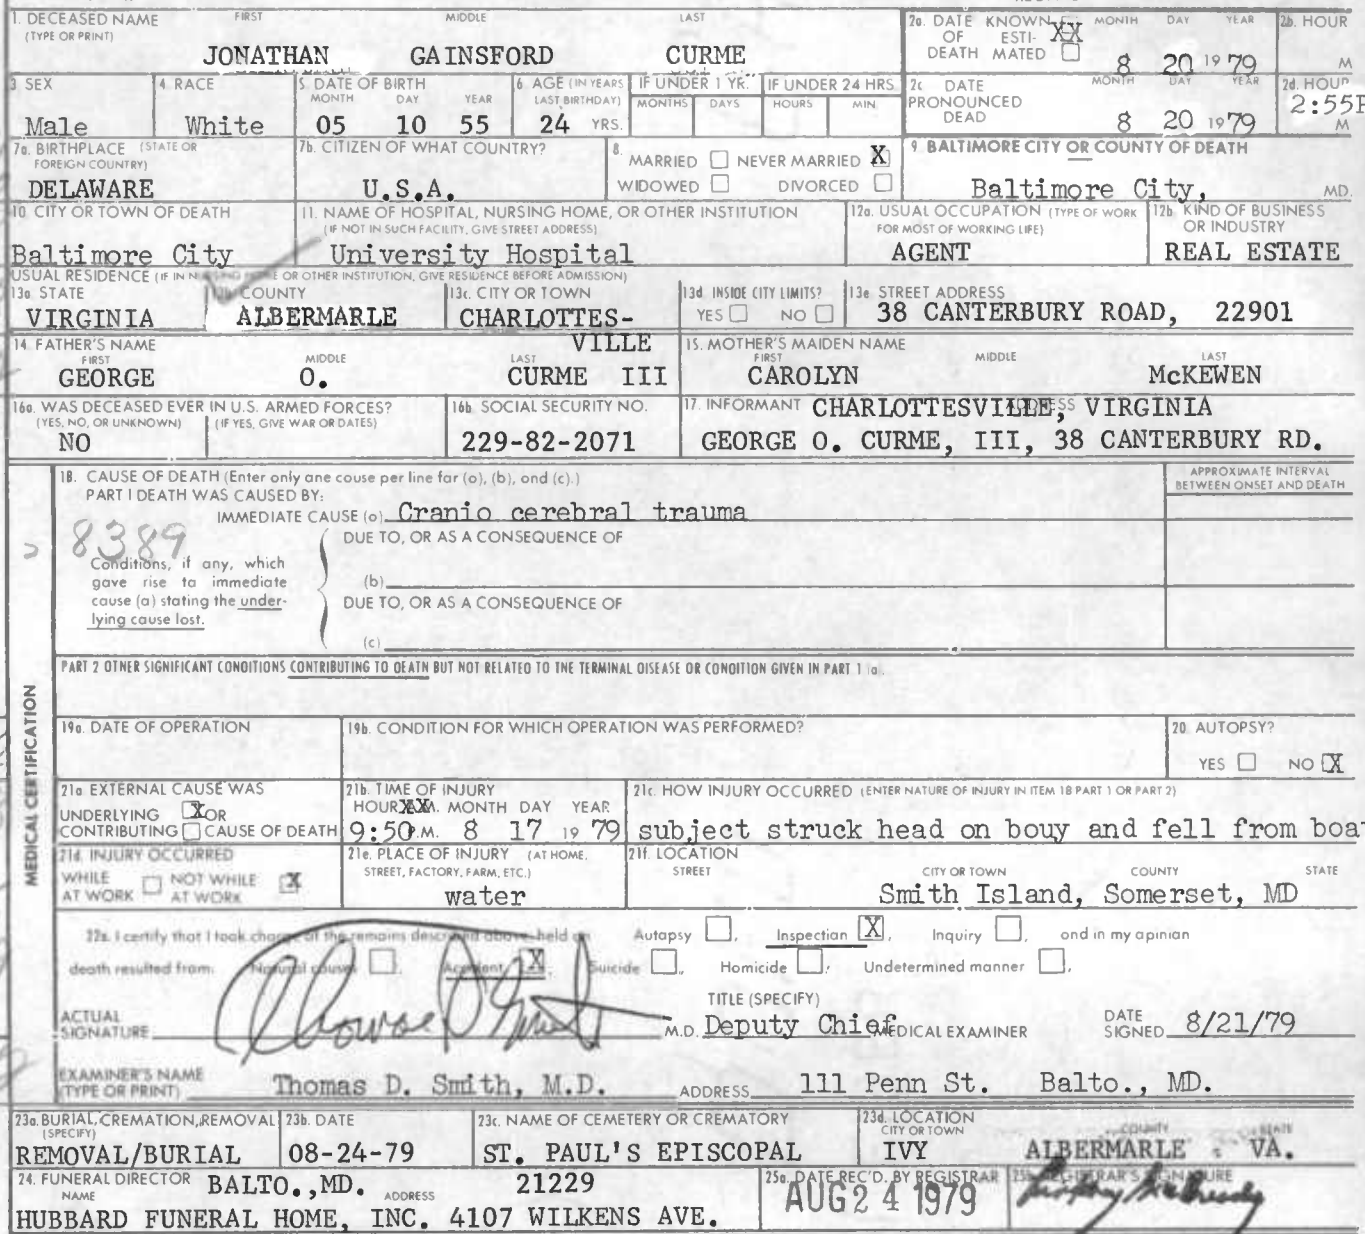 1. DECEASED NAME FIRST MIDDLE LAST
(TYPE OR PRINT)
JONATHAN GAINSFORD CURME
2a. DATE KNOWN XX MONTH DAY YEAR
OF ESTI-
DEATH MATED 8 20 1979
2b. HOUR
M
3 SEX
Male
4 RACE
White
5. DATE OF BIRTH
MONTH DAY YEAR
05 10 55
6 AGE (IN YEARS
LAST BIRTHDAY)
24 YRS.
IF UNDER 1 YR.
MONTHS DAYS
IF UNDER 24 HRS.
HOURS MIN.
2c DATE MONTH DAY YEAR
PRONOUNCED
DEAD 8 20 1979
2d. HOUR
2:55P
M
7a. BIRTHPLACE (STATE OR
FOREIGN COUNTRY)
DELAWARE
7b. CITIZEN OF WHAT COUNTRY?
U.S.A.
8.
MARRIED NEVER MARRIED X
WIDOWED DIVORCED
9 BALTIMORE CITY OR COUNTY OF DEATH
Baltimore City, MD.
10. CITY OR TOWN OF DEATH
Baltimore City
11. NAME OF HOSPITAL, NURSING HOME, OR OTHER INSTITUTION
(IF NOT IN SUCH FACILITY, GIVE STREET ADDRESS)
University Hospital
12a. USUAL OCCUPATION (TYPE OF WORK
FOR MOST OF WORKING LIFE)
AGENT
12b KIND OF BUSINESS
OR INDUSTRY
REAL ESTATE
USUAL RESIDENCE (IF IN NURSING HOME OR OTHER INSTITUTION, GIVE RESIDENCE BEFORE ADMISSION)
13a STATE
VIRGINIA
COUNTY
ALBERMARLE
13c. CITY OR TOWN
CHARLOTTES-
VILLE
13d. INSIDE CITY LIMITS?
YES NO
13e STREET ADDRESS
38 CANTERBURY ROAD, 22901
14. FATHER'S NAME
FIRST MIDDLE LAST
GEORGE O. CURME III
15. MOTHER'S MAIDEN NAME
FIRST MIDDLE LAST
CAROLYN McKEWEN
16a. WAS DECEASED EVER IN U.S. ARMED FORCES?
(YES, NO, OR UNKNOWN) (IF YES, GIVE WAR OR DATES)
NO
16b. SOCIAL SECURITY NO.
229-82-2071
17. INFORMANT CHARLOTTESVILLE, VIRGINIA
GEORGE O. CURME, III, 38 CANTERBURY RD.
18. CAUSE OF DEATH (Enter only one couse per line far (o), (b), ond (c).)
PART I DEATH WAS CAUSED BY:
IMMEDIATE CAUSE (o) Cranio cerebral trauma
APPROXIMATE INTERVAL
BETWEEN ONSET AND DEATH
8389
DUE TO, OR AS A CONSEQUENCE OF
Conditions, if any, which
gave rise ta immediate
cause (a) stating the under-
lying cause lost.
(b)
DUE TO, OR AS A CONSEQUENCE OF
(c)
PART 2 OTHER SIGNIFICANT CONDITIONS CONTRIBUTING TO DEATH BUT NOT RELATED TO THE TERMINAL DISEASE OR CONDITION GIVEN IN PART 1 (a).
MEDICAL CERTIFICATION
19a. DATE OF OPERATION
19b. CONDITION FOR WHICH OPERATION WAS PERFORMED?
20. AUTOPSY?
YES NO X
21a EXTERNAL CAUSE WAS
UNDERLYING X OR
CONTRIBUTING CAUSE OF DEATH
21b. TIME OF INJURY
HOUR MONTH DAY YEAR
9:50P.M. 8 17 1979
21c. HOW INJURY OCCURRED (ENTER NATURE OF INJURY IN ITEM 18 PART 1 OR PART 2)
subject struck head on bouy and fell from boat
21d. INJURY OCCURRED
WHILE NOT WHILE X
AT WORK AT WORK
21e. PLACE OF INJURY (AT HOME,
STREET, FACTORY, FARM, ETC.)
water
21f. LOCATION
STREET CITY OR TOWN COUNTY STATE
Smith Island, Somerset, MD
22a. I certify that I took charge of the remains described above, held an Autapsy, Inspectian X, Inquiry, ond in my apinian
death resulted from: Natural causes, Accident X, Suicide, Homicide, Undetermined manner,
TITLE (SPECIFY)
ACTUAL
SIGNATURE M.D. Deputy Chief MEDICAL EXAMINER
DATE
SIGNED 8/21/79
EXAMINER'S NAME
(TYPE OR PRINT) Thomas D. Smith, M.D. ADDRESS 111 Penn St. Balto., MD.
23a. BURIAL, CREMATION, REMOVAL
(SPECIFY)
REMOVAL/BURIAL
23b. DATE
08-24-79
23c. NAME OF CEMETERY OR CREMATORY
ST. PAUL'S EPISCOPAL
23d. LOCATION
CITY OR TOWN COUNTY STATE
IVY ALBERMARLE VA.
24. FUNERAL DIRECTOR BALTO.,MD. 21229
NAME ADDRESS
HUBBARD FUNERAL HOME, INC. 4107 WILKENS AVE.
25a. DATE REC'D. BY REGISTRAR
AUG 24 1979
25b REGISTRAR'S SIGNATURE